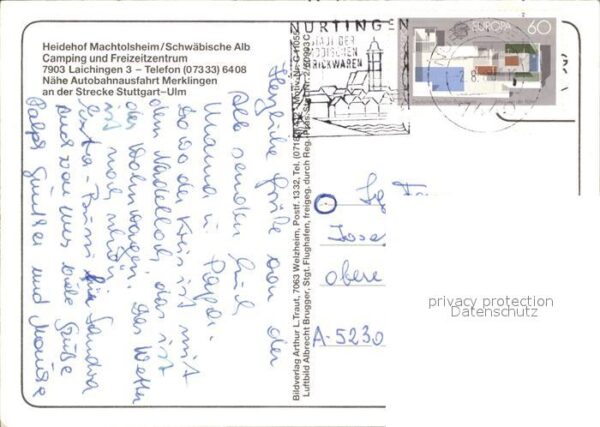 Heidehof Machtolsheim/Schwäbische Alb
Camping und Freizeitzentrum
7903 Laichingen 3 – Telefon (07333) 6408
Nähe Autobahnausfahrt Merklingen
an der Strecke Stuttgart–Ulm
NÜRTINGEN
STADT DER
MODISCHEN
STRICKWAREN
EUROPA 60
Herzliche Grüße von der
Alb senden Euch
Mama u. Papa.
wo der Kreis ist mit
dem Nadelloch, das ist
der Wohnwagen. Das Wetter
ist noch schön.
für Sandra
Auch von uns viele Grüße
Ralph, Günther und
Bildverlag Arthur L. Traut, 7063 Welzheim, Postf. 1332, Tel.
Luftbild Albrecht Brugger, Stgt. Flughafen, freigeg. durch Reg. Präs. Stgt.
Jose
obere
A-5230
privacy protection
Datenschutz